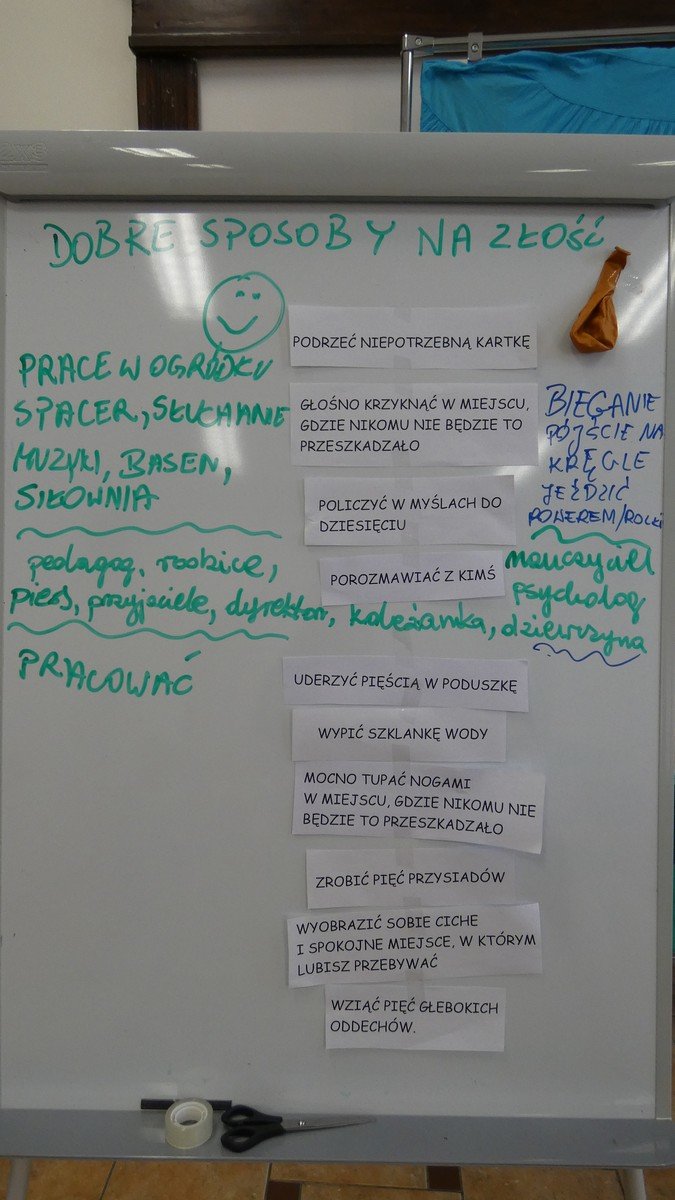 DOBRE SPOSOBY NA ZŁOŚĆ
PRACE W OGRÓDKU
SPACER, SŁUCHANIE
MUZYKI, BASEN,
SIŁOWNIA
pedagog, rodzice,
pies, przyjaciele, dyrektor, koleżanka, dziewczyna
PRACOWAĆ
PODRZEĆ NIEPOTRZEBNĄ KARTKĘ
GŁOŚNO KRZYKNĄĆ W MIEJSCU,
GDZIE NIKOMU NIE BĘDZIE TO
PRZESZKADZAŁO
POLICZYĆ W MYŚLACH DO
DZIESIĘCIU
POROZMAWIAĆ Z KIMŚ
UDERZYĆ PIĘŚCIĄ W PODUSZKĘ
WYPIĆ SZKLANKĘ WODY
MOCNO TUPAĆ NOGAMI
W MIEJSCU, GDZIE NIKOMU NIE
BĘDZIE TO PRZESZKADZAŁO
ZROBIĆ PIĘĆ PRZYSIADÓW
WYOBRAZIĆ SOBIE CICHE
I SPOKOJNE MIEJSCE, W KTÓRYM
LUBISZ PRZEBYWAĆ
WZIĄĆ PIĘĆ GŁEBOKICH
ODDECHÓW.
BIEGANIE
PÓJŚCIE NA
KRĘGLE
JEŹDZIĆ
ROWEREM/ROLKI
nauczyciel
psycholog